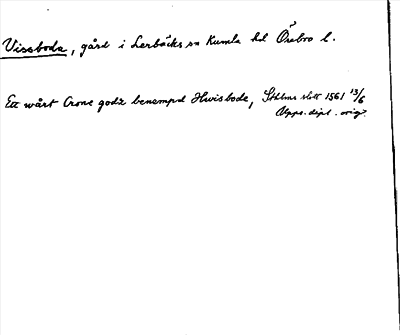 Vissboda, gård i Lerbäcks sn Kumla hd Örebro l.
Ett wårt Crone godz benempd Hwisbode, Sthlms slott 1561 13/6
Upps. dipl. orig.